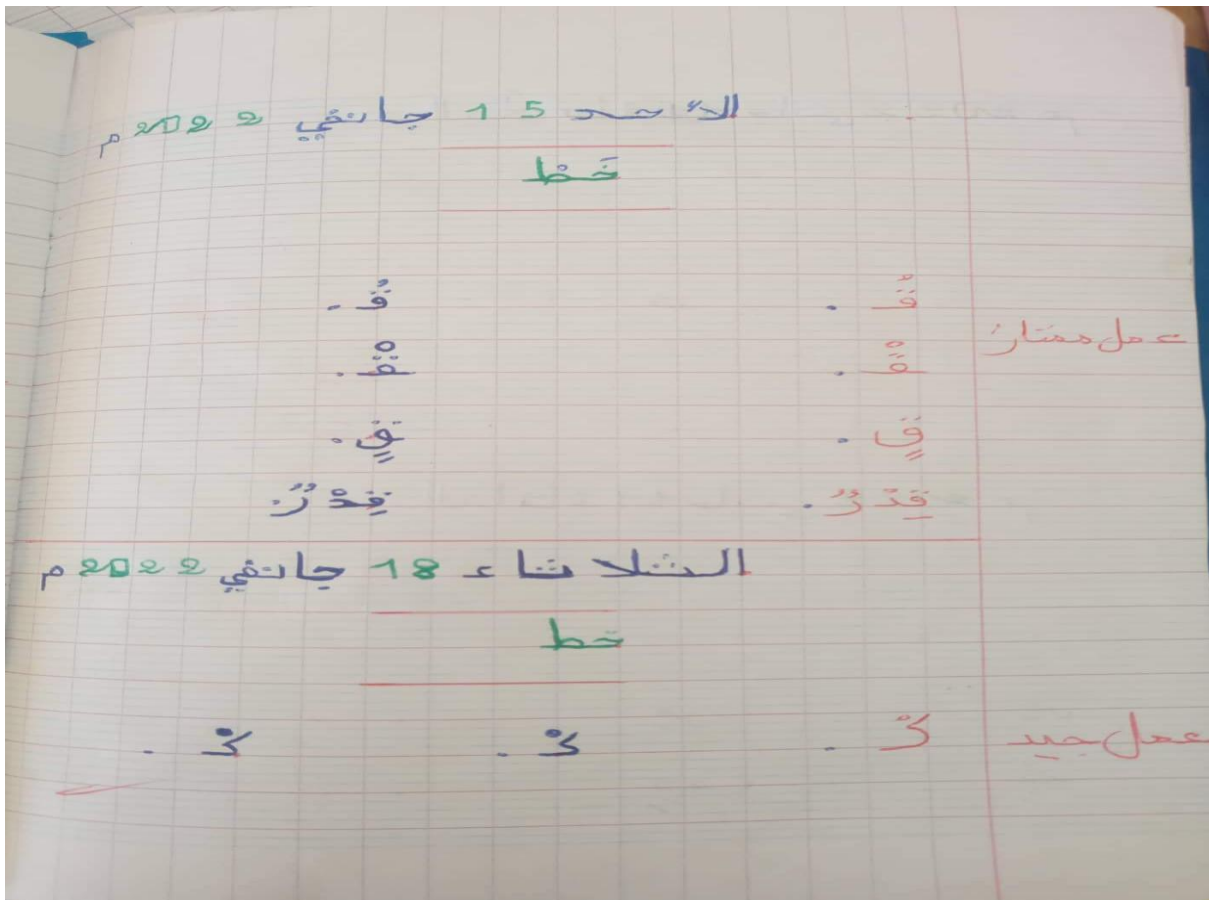 الأحد 15 جانفي 2022م
خَطْ
قُ . قُ .
قْ . قْ .
عمل ممتاز
قٍ . قٍ .
قِدْرٌ . قِدْرٌ .
الثلاثاء 18 جانفي 2022م
خط
عمل جيد كْ . كْ . كْ .